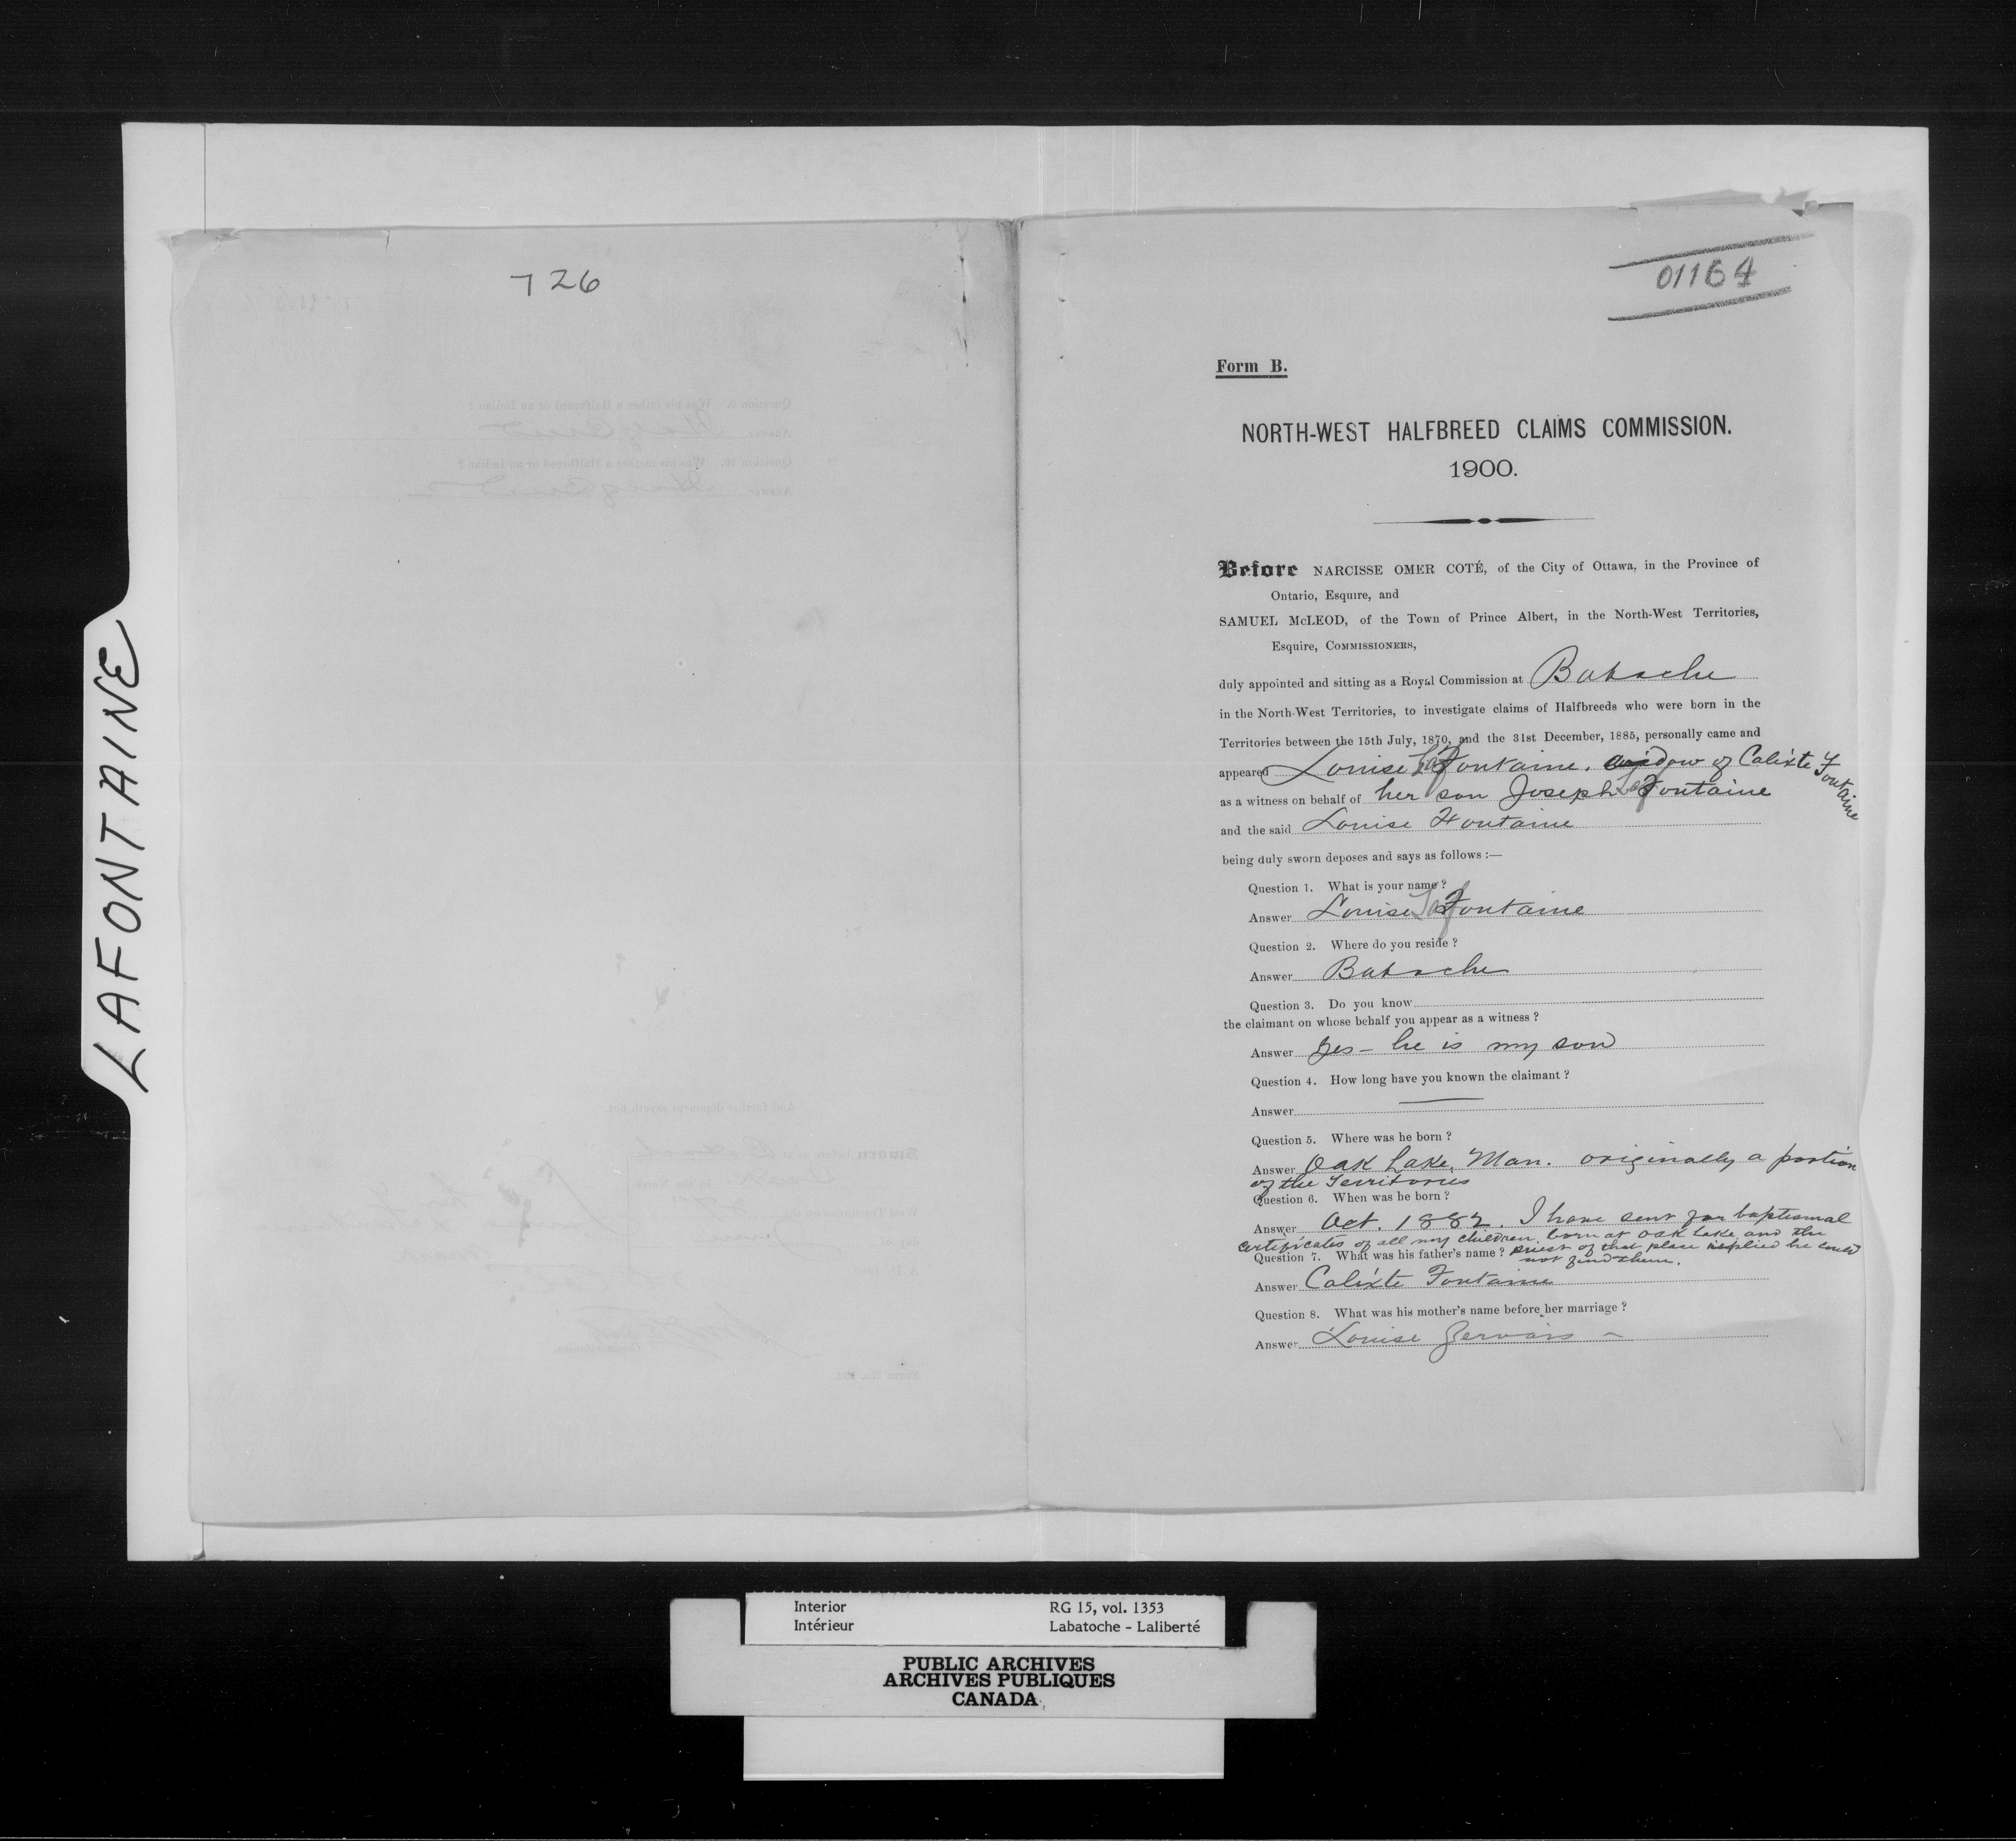 LAFONTAINE
726
01164
Form B.
NORTH-WEST HALFBREED CLAIMS COMMISSION.
1900.
Before NARCISSE OMER COTÉ, of the City of Ottawa, in the Province of
Ontario, Esquire, and
SAMUEL McLEOD, of the Town of Prince Albert, in the North-West Territories,
Esquire, COMMISSIONERS,
duly appointed and sitting as a Royal Commission at Batoche
in the North-West Territories, to investigate claims of Halfbreeds who were born in the
Territories between the 15th July, 1870, and the 31st December, 1885, personally came and
appeared Louise LaFontaine, widow of Calixte Fontaine
as a witness on behalf of her son Joseph LaFontaine
and the said Louise Fontaine
being duly sworn deposes and says as follows :—
Question 1. What is your name ?
Answer Louise LaFontaine
Question 2. Where do you reside ?
Answer Batoche
Question 3. Do you know
the claimant on whose behalf you appear as a witness ?
Answer Yes - he is my son
Question 4. How long have you known the claimant ?
Answer —
Question 5. Where was he born ?
Answer Oak Lake, Man. originally a portion
of the Territories
Question 6. When was he born ?
Answer Oct. 1882. I have sent for baptismal
certificates of all my children born at Oak Lake and the
Question 7. What was his father's name ? priest of that place replied he could
not find them.
Answer Calixte Fontaine
Question 8. What was his mother's name before her marriage ?
Answer Louise Gervais
Interior RG 15, vol. 1353
Intérieur Labatoche - Laliberté
PUBLIC ARCHIVES
ARCHIVES PUBLIQUES
CANADA